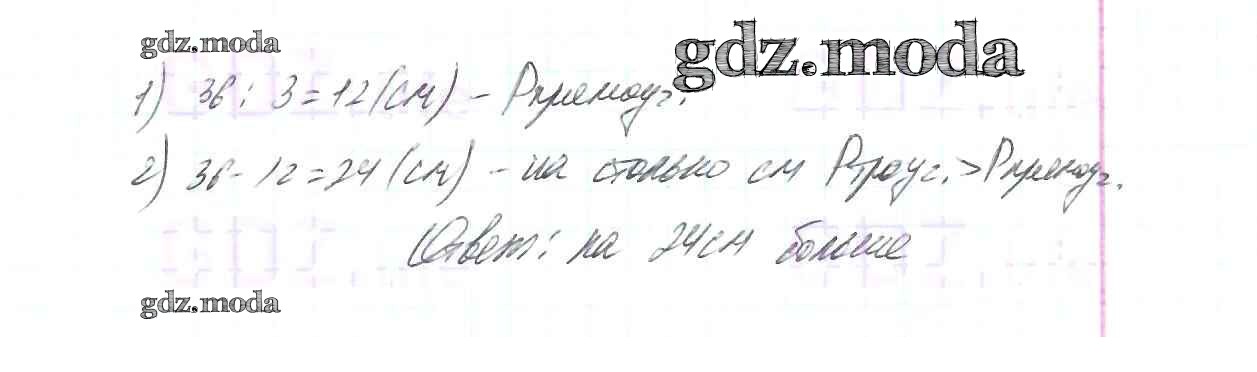 gdz.moda
gdz.moda
1) 36 : 3 = 12 (см) - Pпрямоуг.
2) 36 - 12 = 24 (см) - на столько см Pтреуг. > Pпрямоуг.
Ответ: на 24 см больше
gdz.moda